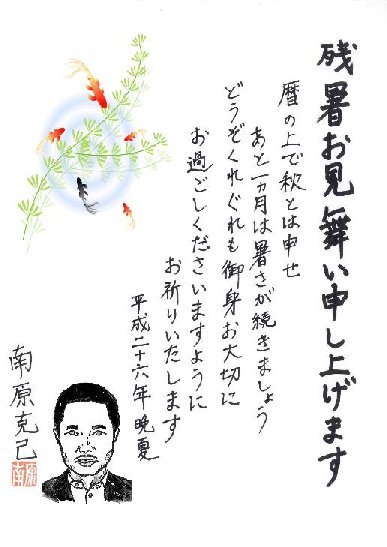 残暑お見舞い申し上げます
暦の上で秋とは申せ
あと一ヵ月は暑さが続きましょう
どうぞくれぐれも御身お大切に
お過ごしくださいますように
お祈りいたします
平成二十六年晩夏
南原克己
南原